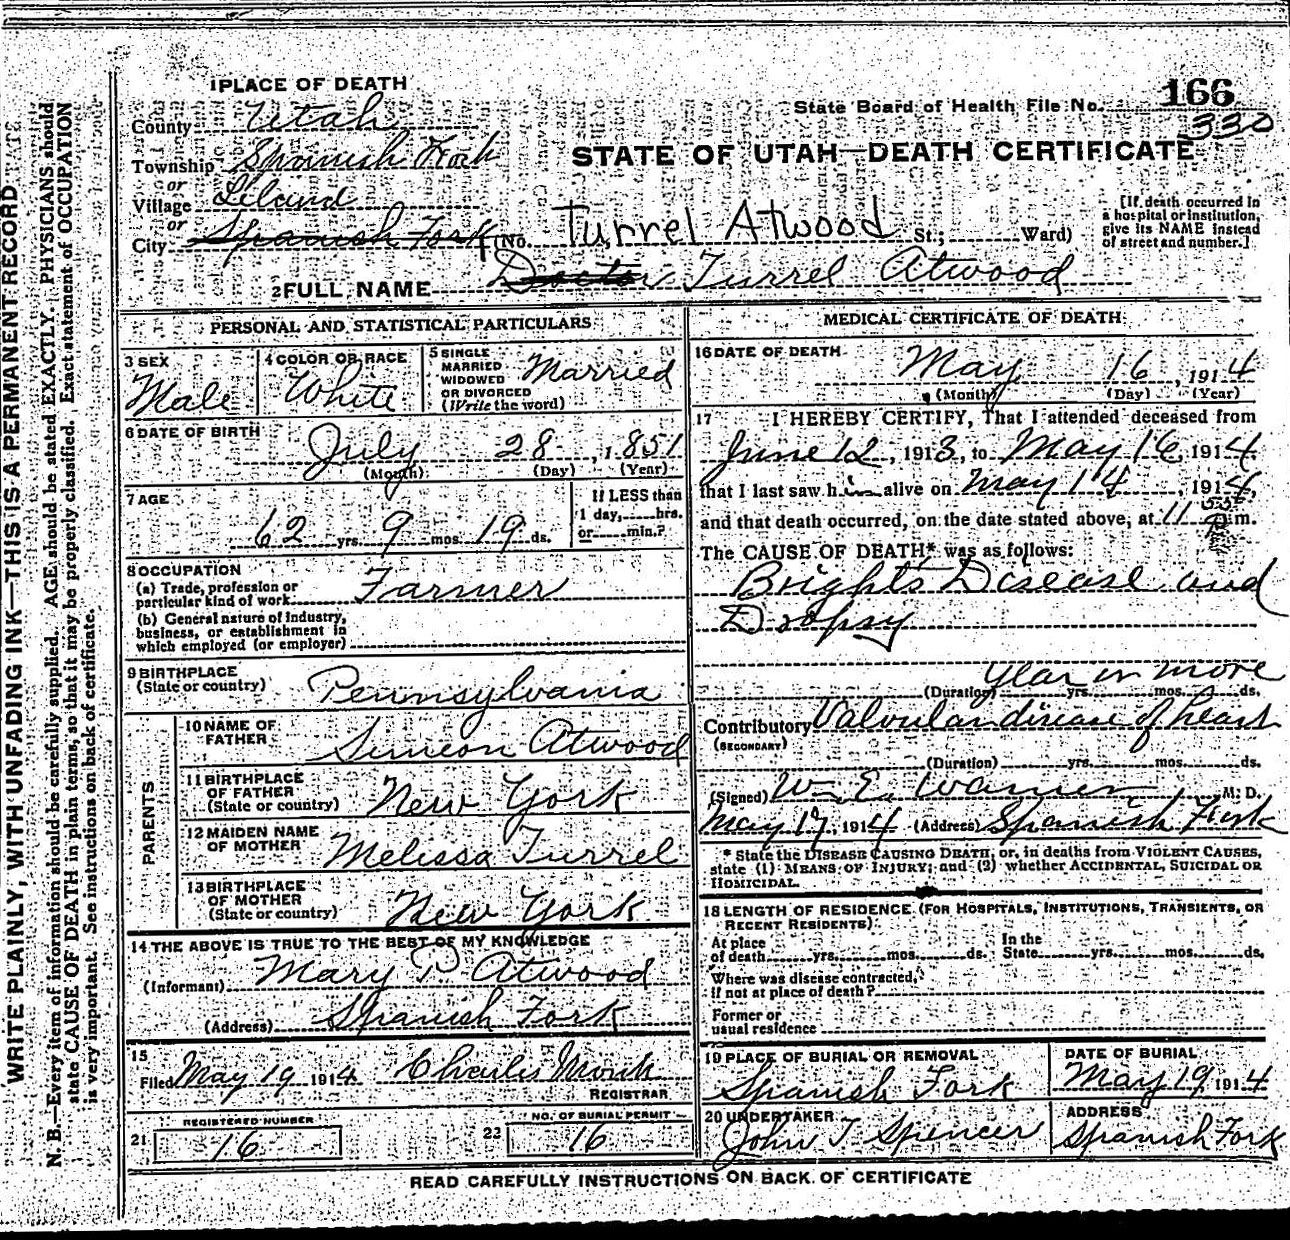 WRITE PLAINLY, WITH UNFADING INK—THIS IS A PERMANENT RECORD
N. B.—Every item of information should be carefully supplied. AGE should be stated EXACTLY. PHYSICIANS should
state CAUSE OF DEATH in plain terms, so that it may be properly classified. Exact statement of OCCUPATION
is very important. See instructions on back of certificate.
1 PLACE OF DEATH
County Utah
Township Spanish Fork
or
Village Leland
or
City Spanish Fork (No. Turrel Atwood St.; Ward)
State Board of Health File No. 166
330
STATE OF UTAH—DEATH CERTIFICATE
[If death occurred in
a hospital or institution,
give its NAME instead
of street and number.]
2 FULL NAME Doctor Turrel Atwood
PERSONAL AND STATISTICAL PARTICULARS
3 SEX
Male
4 COLOR OR RACE
White
5 SINGLE
MARRIED
WIDOWED
OR DIVORCED
(Write the word)
Married
6 DATE OF BIRTH
July 28, 1851
(Month) (Day) (Year)
7 AGE
62 yrs. 9 mos. 19 ds.
If LESS than
1 day, hrs.
or min.?
8 OCCUPATION
(a) Trade, profession or
particular kind of work Farmer
(b) General nature of industry,
business, or establishment in
which employed (or employer)
9 BIRTHPLACE
(State or country) Pennsylvania
PARENTS
10 NAME OF
FATHER Simeon Atwood
11 BIRTHPLACE
OF FATHER
(State or country) New York
12 MAIDEN NAME
OF MOTHER Melissa Turrel
13 BIRTHPLACE
OF MOTHER
(State or country) New York
14 THE ABOVE IS TRUE TO THE BEST OF MY KNOWLEDGE
(Informant) Mary P Atwood
(Address) Spanish Fork
15
Filed May 19 1914 Charles Monk
REGISTRAR
REGISTERED NUMBER
21 16
NO. OF BURIAL PERMIT
22 16
MEDICAL CERTIFICATE OF DEATH
16 DATE OF DEATH
May 16, 1914
(Month) (Day) (Year)
17 I HEREBY CERTIFY, That I attended deceased from
June 12, 1913, to May 16, 1914
that I last saw him alive on May 14, 1914,
and that death occurred, on the date stated above, at 11 35 P.m.
The CAUSE OF DEATH* was as follows:
Brights Disease and
Dropsy
year or more
(Duration) yrs. mos. ds.
Contributory Valvular disease of heart
(SECONDARY)
(Duration) yrs. mos. ds.
(Signed) W. E. Warner, M. D.
May 17, 1914 (Address) Spanish Fork
* State the DISEASE CAUSING DEATH, or, in deaths from VIOLENT CAUSES,
state (1) MEANS OF INJURY; and (2) whether ACCIDENTAL, SUICIDAL OR
HOMICIDAL.
18 LENGTH OF RESIDENCE (FOR HOSPITALS, INSTITUTIONS, TRANSIENTS, OR
RECENT RESIDENTS)
At place
of death yrs. mos. ds.
In the
State yrs. mos. ds.
Where was disease contracted,
if not at place of death?
Former or
usual residence
19 PLACE OF BURIAL OR REMOVAL
Spanish Fork
DATE OF BURIAL
May 19, 1914
20 UNDERTAKER
John T Spencer
ADDRESS
Spanish Fork
READ CAREFULLY INSTRUCTIONS ON BACK OF CERTIFICATE